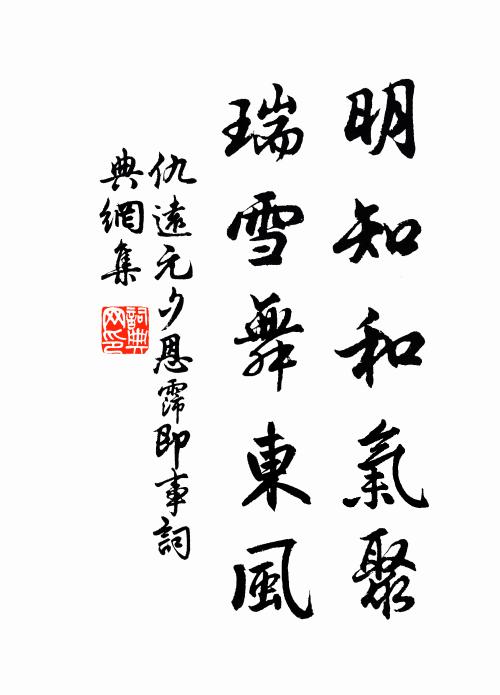 明知和氣聚
瑞雪舞東風
仇遠元夕恩霈即事詞
典網集
詞典
网印